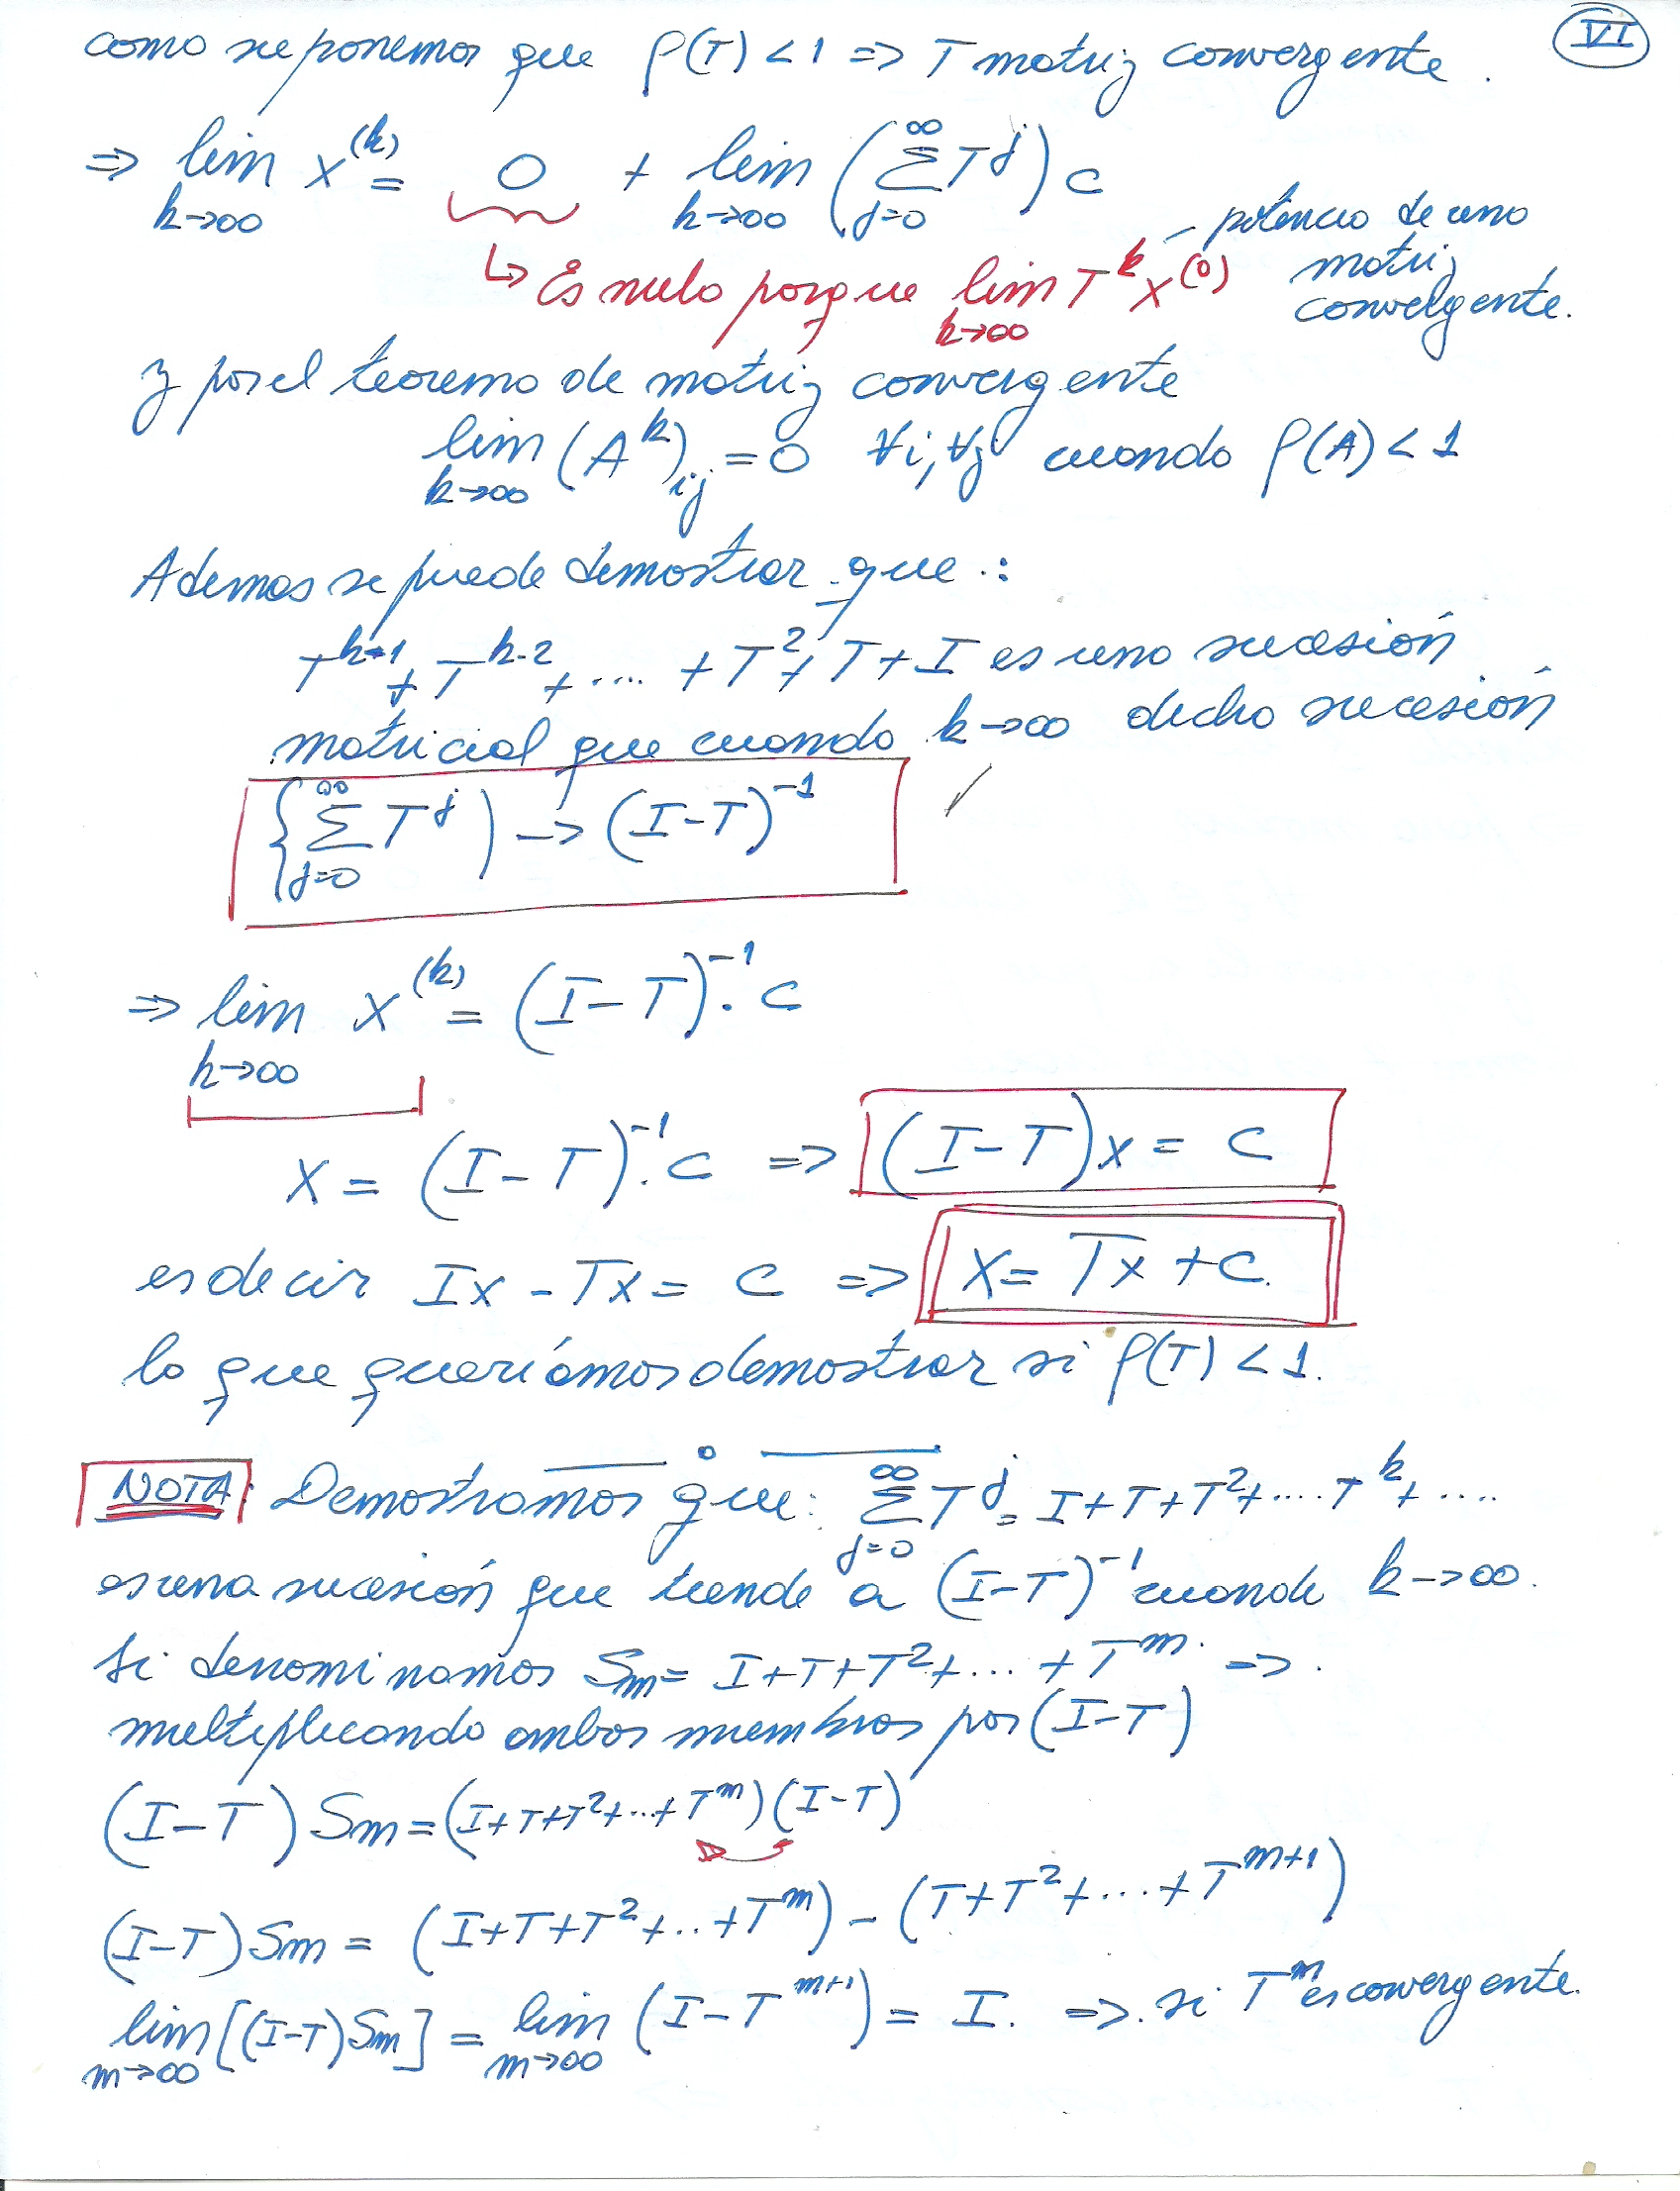 VI
como suponemos que ρ(T) < 1 => T matriz convergente.
=> lim x^(k) = 0 + lim (∑ T^j) c
k→∞ k→∞ j=0 ∞
- potencia de una matriz convergente.
↳ Es nulo porque lim T^k x^(0)
k→∞
y por el teorema de matriz convergente
lim (A^k)ij = 0 ∀i, ∀j cuando ρ(A) < 1
k→∞
Ademas se puede demostrar que :
T^k-1 + T^k-2 + .... + T^2 + T + I es una sucesión
matricial que cuando k→∞ dicha sucesión
{∑ T^j) → (I-T)^-1
j=0 ∞
=> lim x^(k) = (I-T)^-1 . c
k→∞
x = (I-T)^-1 . c => (I-T)x = c
es decir Ix - Tx = c => x = Tx + c.
lo que queríamos demostrar si ρ(T) < 1.
NOTA: Demostramos que: ∑ T^j = I+T+T^2+....T^k+....
j=0 ∞
es una sucesión que tiende a (I-T)^-1 cuando k→∞.
Si denominamos Sm = I+T+T^2+...+T^m =>.
multiplicando ambos miembros por (I-T)
(I-T) Sm = (I+T+T^2+...+T^m)(I-T)
(I-T)Sm = (I+T+T^2+...+T^m) - (T+T^2+...+T^m+1)
lim [(I-T)Sm] = lim (I-T^m+1) = I. =>. si T^m es convergente.
m→∞ m→∞